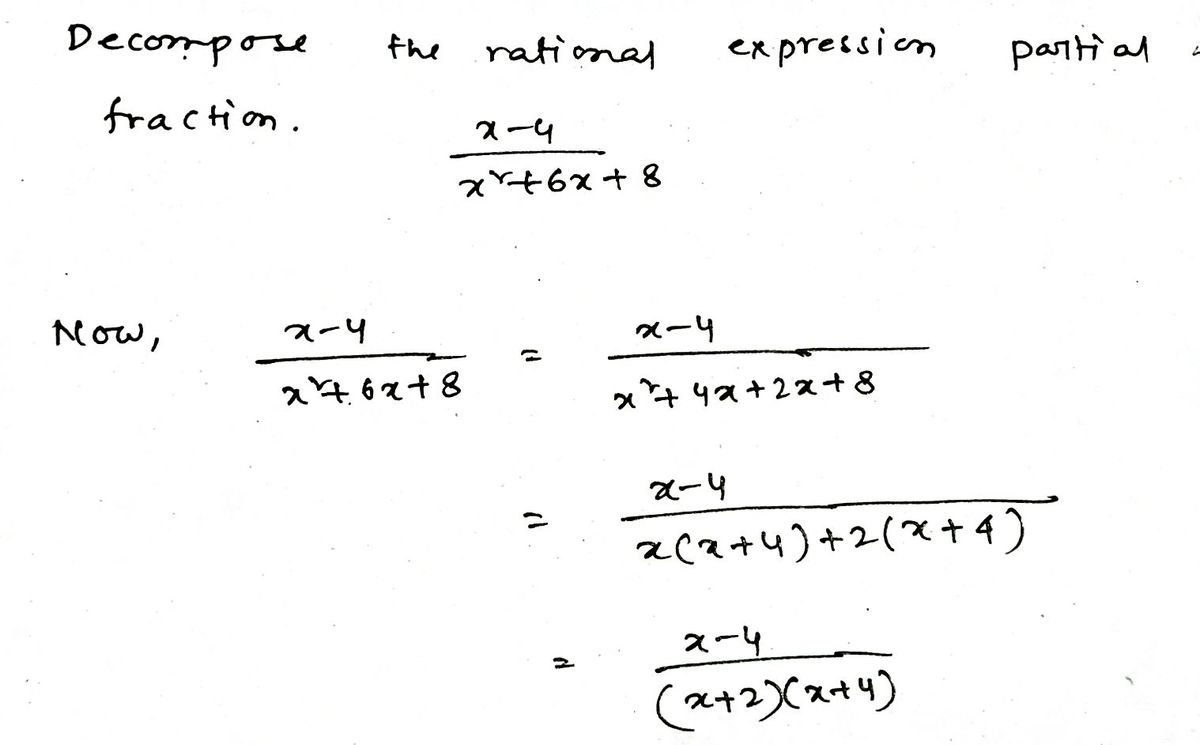 Decompose the rational expression partial
fraction.
x-4
x²+6x+8
Now, x-4 / x²+6x+8 = x-4 / x²+4x+2x+8
= x-4 / x(x+4)+2(x+4)
= x-4 / (x+2)(x+4)